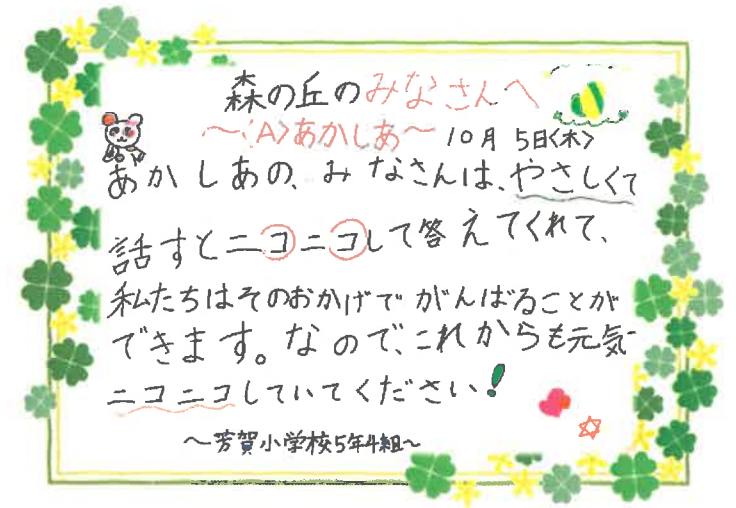 森の丘のみなさんへ
〜〈A〉あかしあ〜 10月 5日〈木〉
あかしあの、みなさんは、やさしくて
話すとニコニコして答えてくれて、
私たちはそのおかげでがんばることが
できます。なので、これからも元気
ニコニコしていてください!
〜芳賀小学校5年4組〜